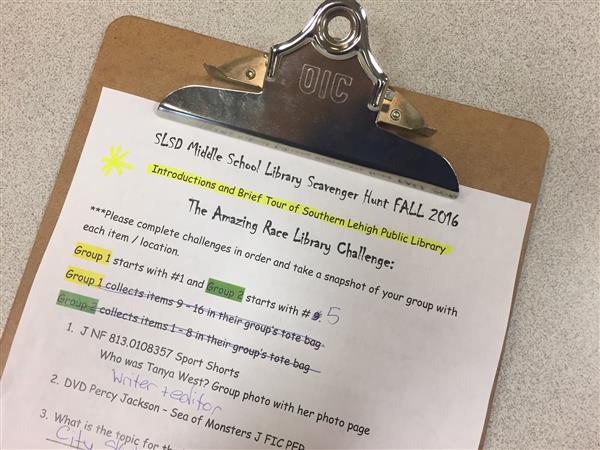 OIC
SLSD Middle School Library Scavenger Hunt FALL 2016
Introductions and Brief Tour of Southern Lehigh Public Library
The Amazing Race Library Challenge:
***Please complete challenges in order and take a snapshot of your group with
each item / location.
Group 1 starts with #1 and Group 2 starts with #9. 5
Group 1 collects items 9 - 16 in their group's tote bag
Group 2 collects items 1 - 8 in their group's tote bag
1. J NF 813.0108357 Sport Shorts
Who was Tanya West? Group photo with her photo page
writer + editor
2. DVD Percy Jackson - Sea of Monsters J FIC PER
3. What is the topic for th
City